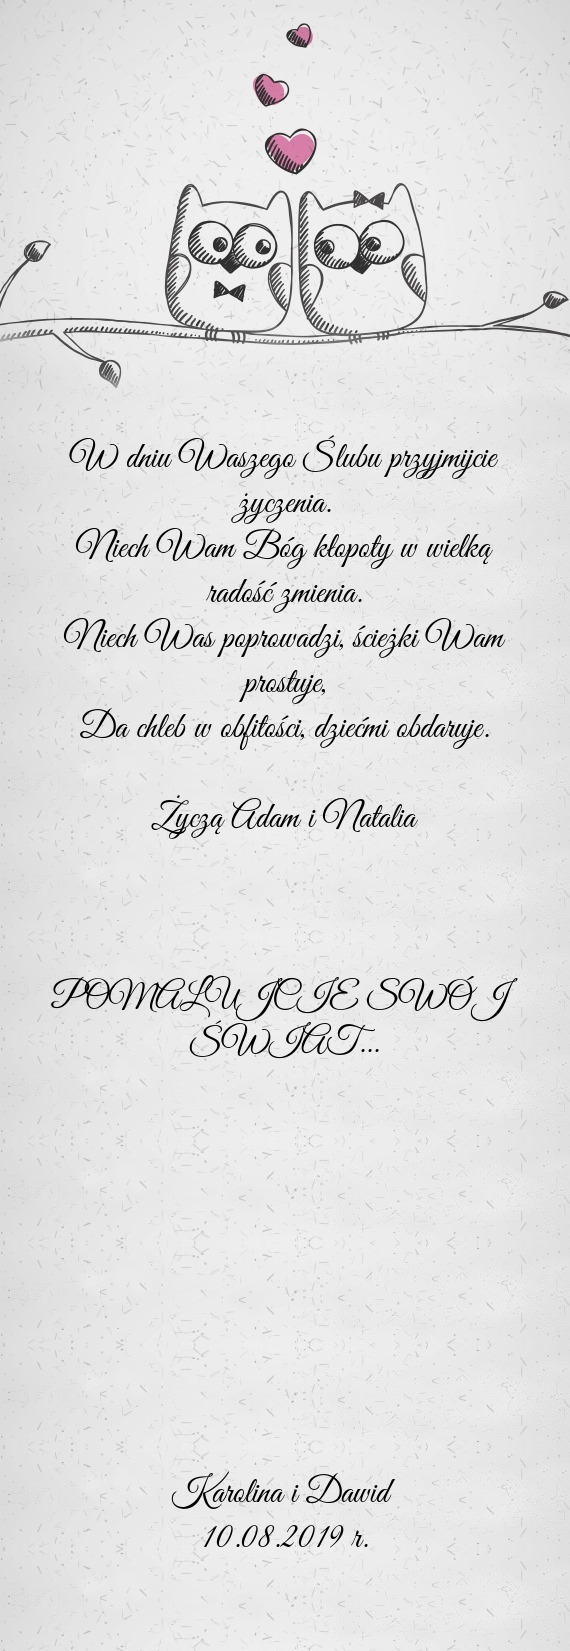 W dniu Waszego Ślubu przyjmijcie
życzenia.
Niech Wam Bóg kłopoty w wielką
radość zmienia.
Niech Was poprowadzi, ścieżki Wam
prostuje,
Da chleb w obfitości, dziećmi obdaruje.
Życzą Adam i Natalia
POMALUJCIE SWÓJ
ŚWIAT...
Karolina i Dawid
10.08.2019 r.